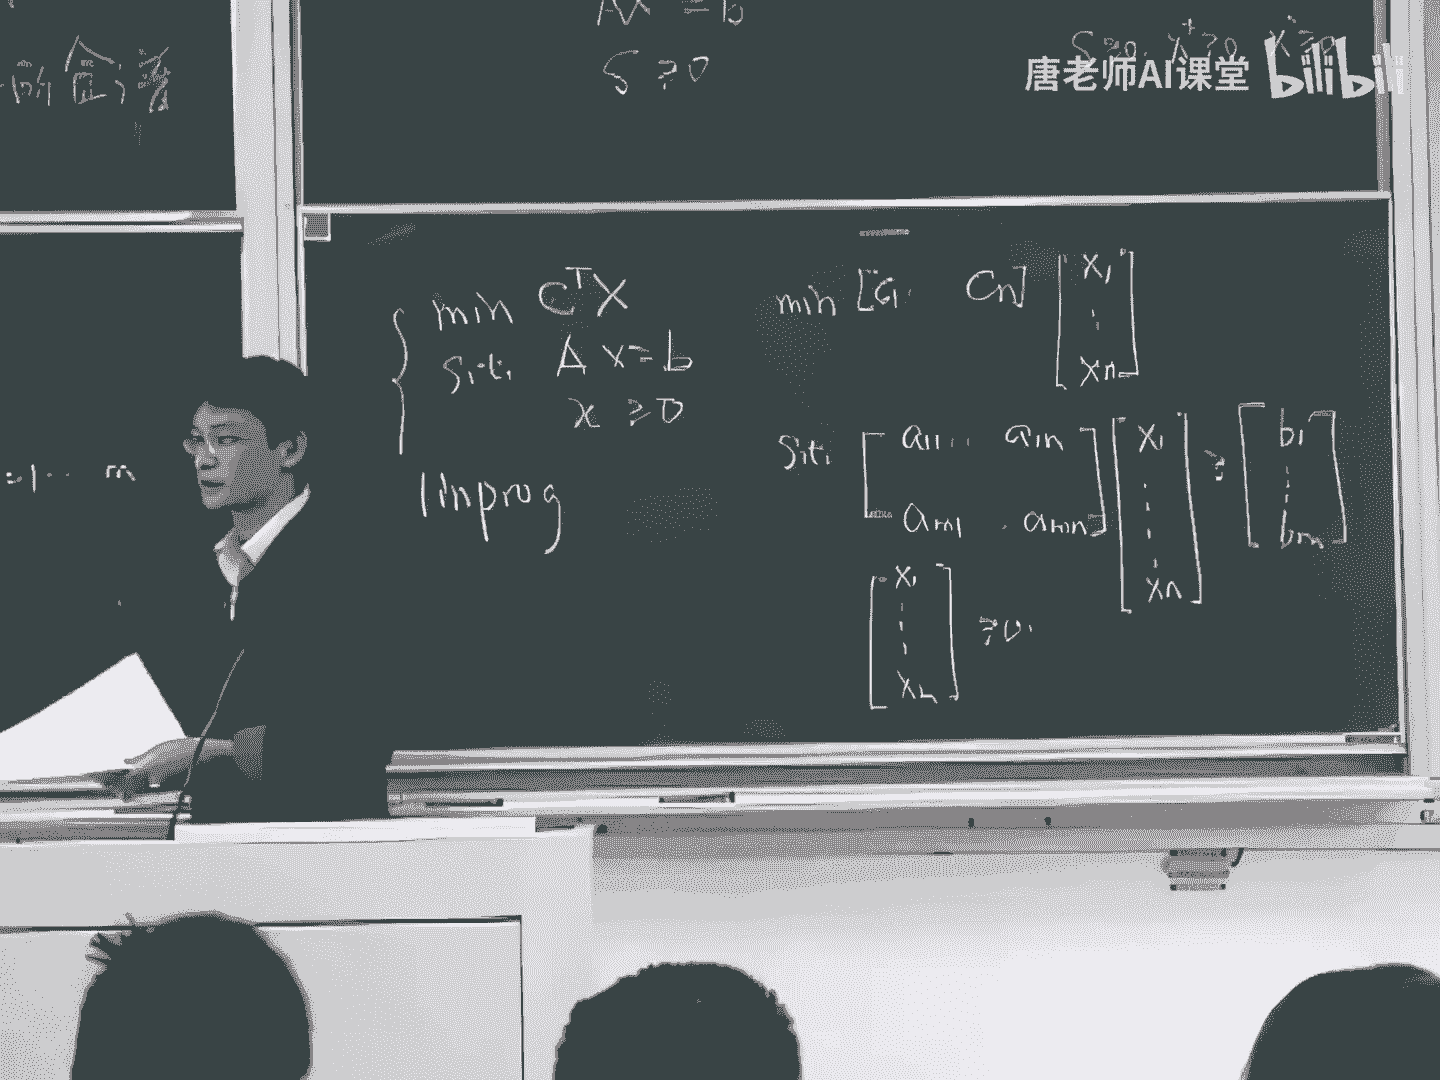 Ax = b
S ≥ 0
S ≥ 0, x⁺ ≥ 0, x⁻ ≥ 0
唐老师AI课堂 bilibili
min CᵀX
s.t. A x = b
x ≥ 0
linprog
min [C₁ Cₙ] [x₁ ⋮ xₙ]
s.t. [a₁₁ ... a₁ₙ
aₘ₁ . aₘₙ] [x₁ ⋮ xₙ] ≥ [b₁ ⋮ bₘ]
[x₁ ⋮ xₙ] ≥ 0.
=1... m